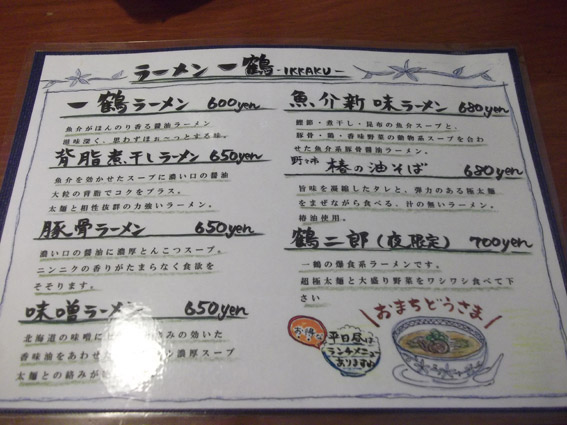 ラーメン 一鶴 -IKKAKU-
一鶴ラーメン 600yen
魚介がほんのり香る醤油ラーメン
背脂煮干しラーメン 650yen
魚介を効かせたスープに濃い口の醤油
大粒の背脂でコクをプラス。
太麺と相性抜群の力強いラーメン。
豚骨ラーメン 650yen
濃い口の醤油に濃厚とんこつスープ。
ニンニクの香りがたまらなく食欲を
そそります。
味噌ラーメン 650yen
北海道の味噌に みの効いた
香味油をあわせた ン濃厚スープ
太麺との絡みが
魚介新味ラーメン 680yen
鰹節・煮干し・昆布の魚介スープと、
豚骨・鶏・香味野菜の動物系スープを合わ
せた魚介系豚骨醤油ラーメン。
椿の油そば 680yen
旨味を凝縮したタレと、弾力のある極太麺
をまぜながら食べる、汁の無いラーメン。
椿油使用。
鶴二郎(夜限定) 700yen
一鶴の爆食系ラーメンです。
超極太麺と大盛り野菜をワシワシ食べて下
さい
おまちどうさま
お得な
平日昼は
ランチメニュー
あります